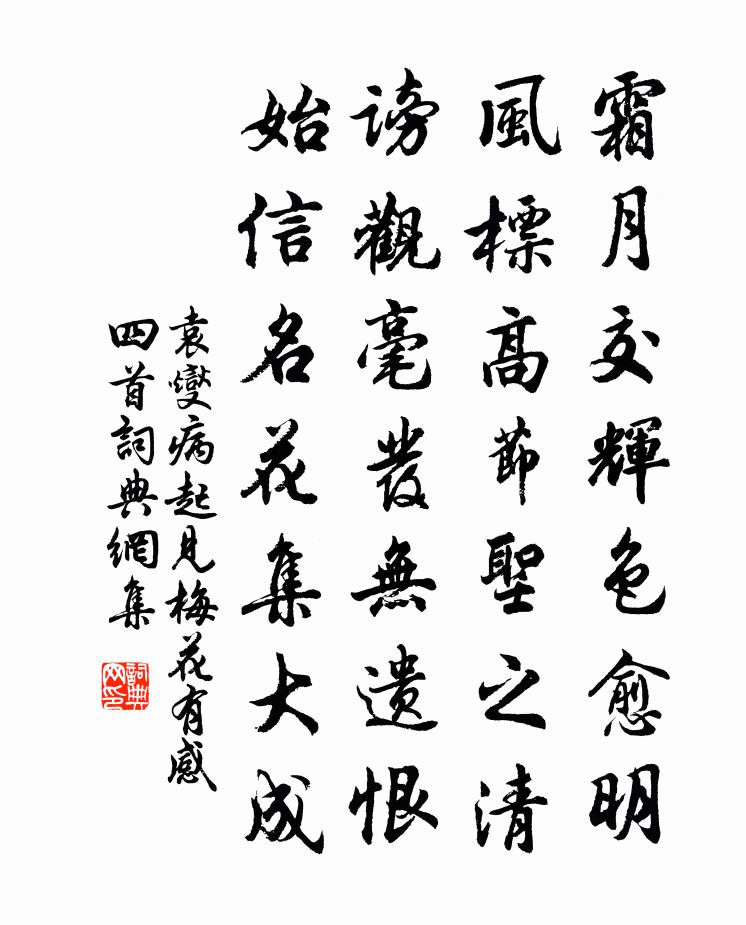 霜月交輝色愈明
風標高節聖之清
謗觀毫發無遺恨
始信名花集大成
袁燮病起見梅花有感
四首詞典網集
詞典網印